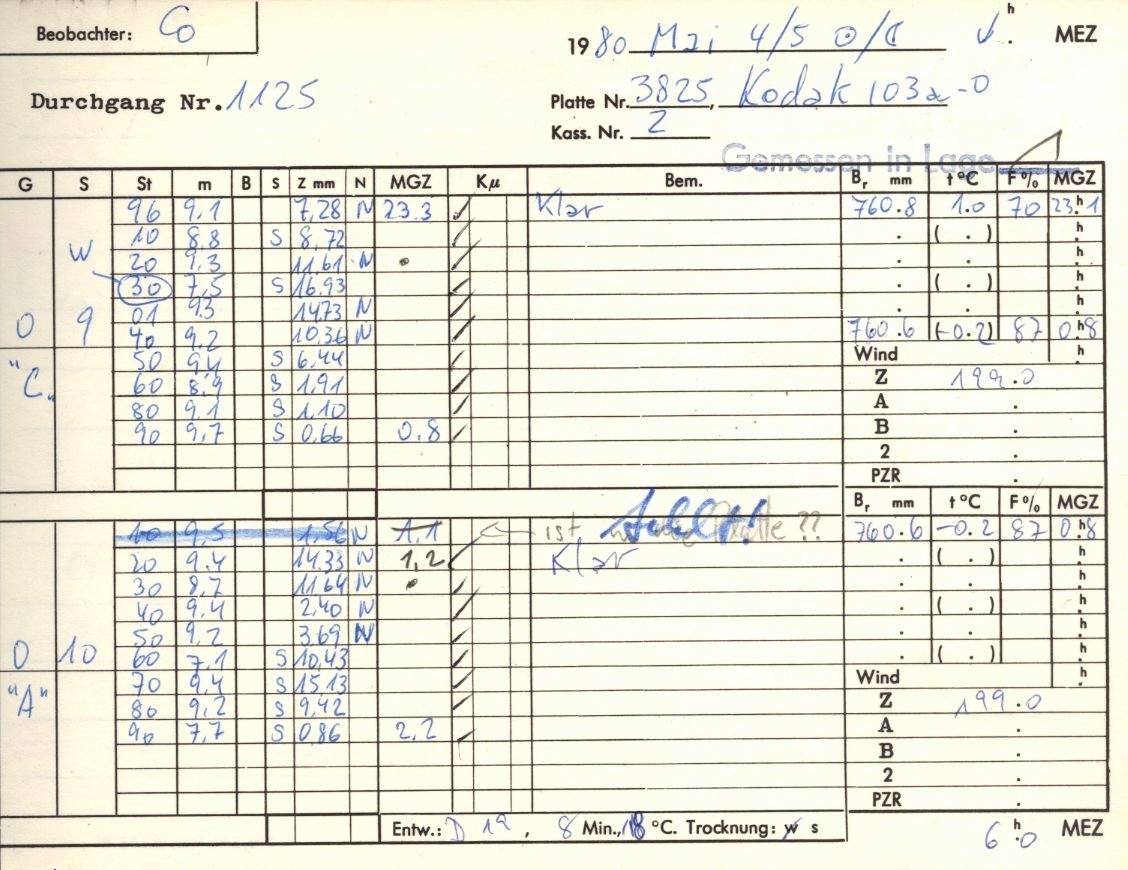 Beobachter: Co
1980 Mai 4/5 ⊙/☾ h . MEZ
Durchgang Nr. 1125
Platte Nr. 3825, Kodak 103a-O
Kass. Nr. 2
Gemessen in Lage
G S St m B S Z mm N MGZ Kμ Bem. Br mm t °C F % MGZ
96 9,1 7,28 N 23.3 Klar 760.8 1.0 70 23h1
10 8,8 S 8,72 . ( . ) h
W 20 9,3 11,61 N . . h
30 7,5 S 16,93 . ( . ) h
01 9,3 14,73 N . . h
0 9 40 9,2 10,36 N 760.6 (-0.2) 87 0h8
50 9,4 S 6,44 Wind h
"C" 60 8,9 S 1,91 Z 199.0
80 9,1 S 1,10 A .
90 9,7 S 0,66 0.8 B .
2 .
PZR .
Br mm t °C F % MGZ
10 9,5 1,56 N 1,1 ist Platte ?? fehlt! 760.6 -0.2 87 0h8
20 9,4 14,33 N 1,2 Klar . ( . ) h
30 8,7 11,64 N . . h
40 9,4 2,40 N . ( . ) h
50 9,2 3,69 N . . h
0 10 60 7,1 S 10,43 . ( . ) h
70 9,4 S 15,13 Wind h
"A" 80 9,2 S 9,42 Z 199.0
90 7,7 S 0,86 2,2 A .
B .
2 .
PZR .
Entw.: D 19, 8 Min., 18 °C. Trocknung: w s
6h0 MEZ